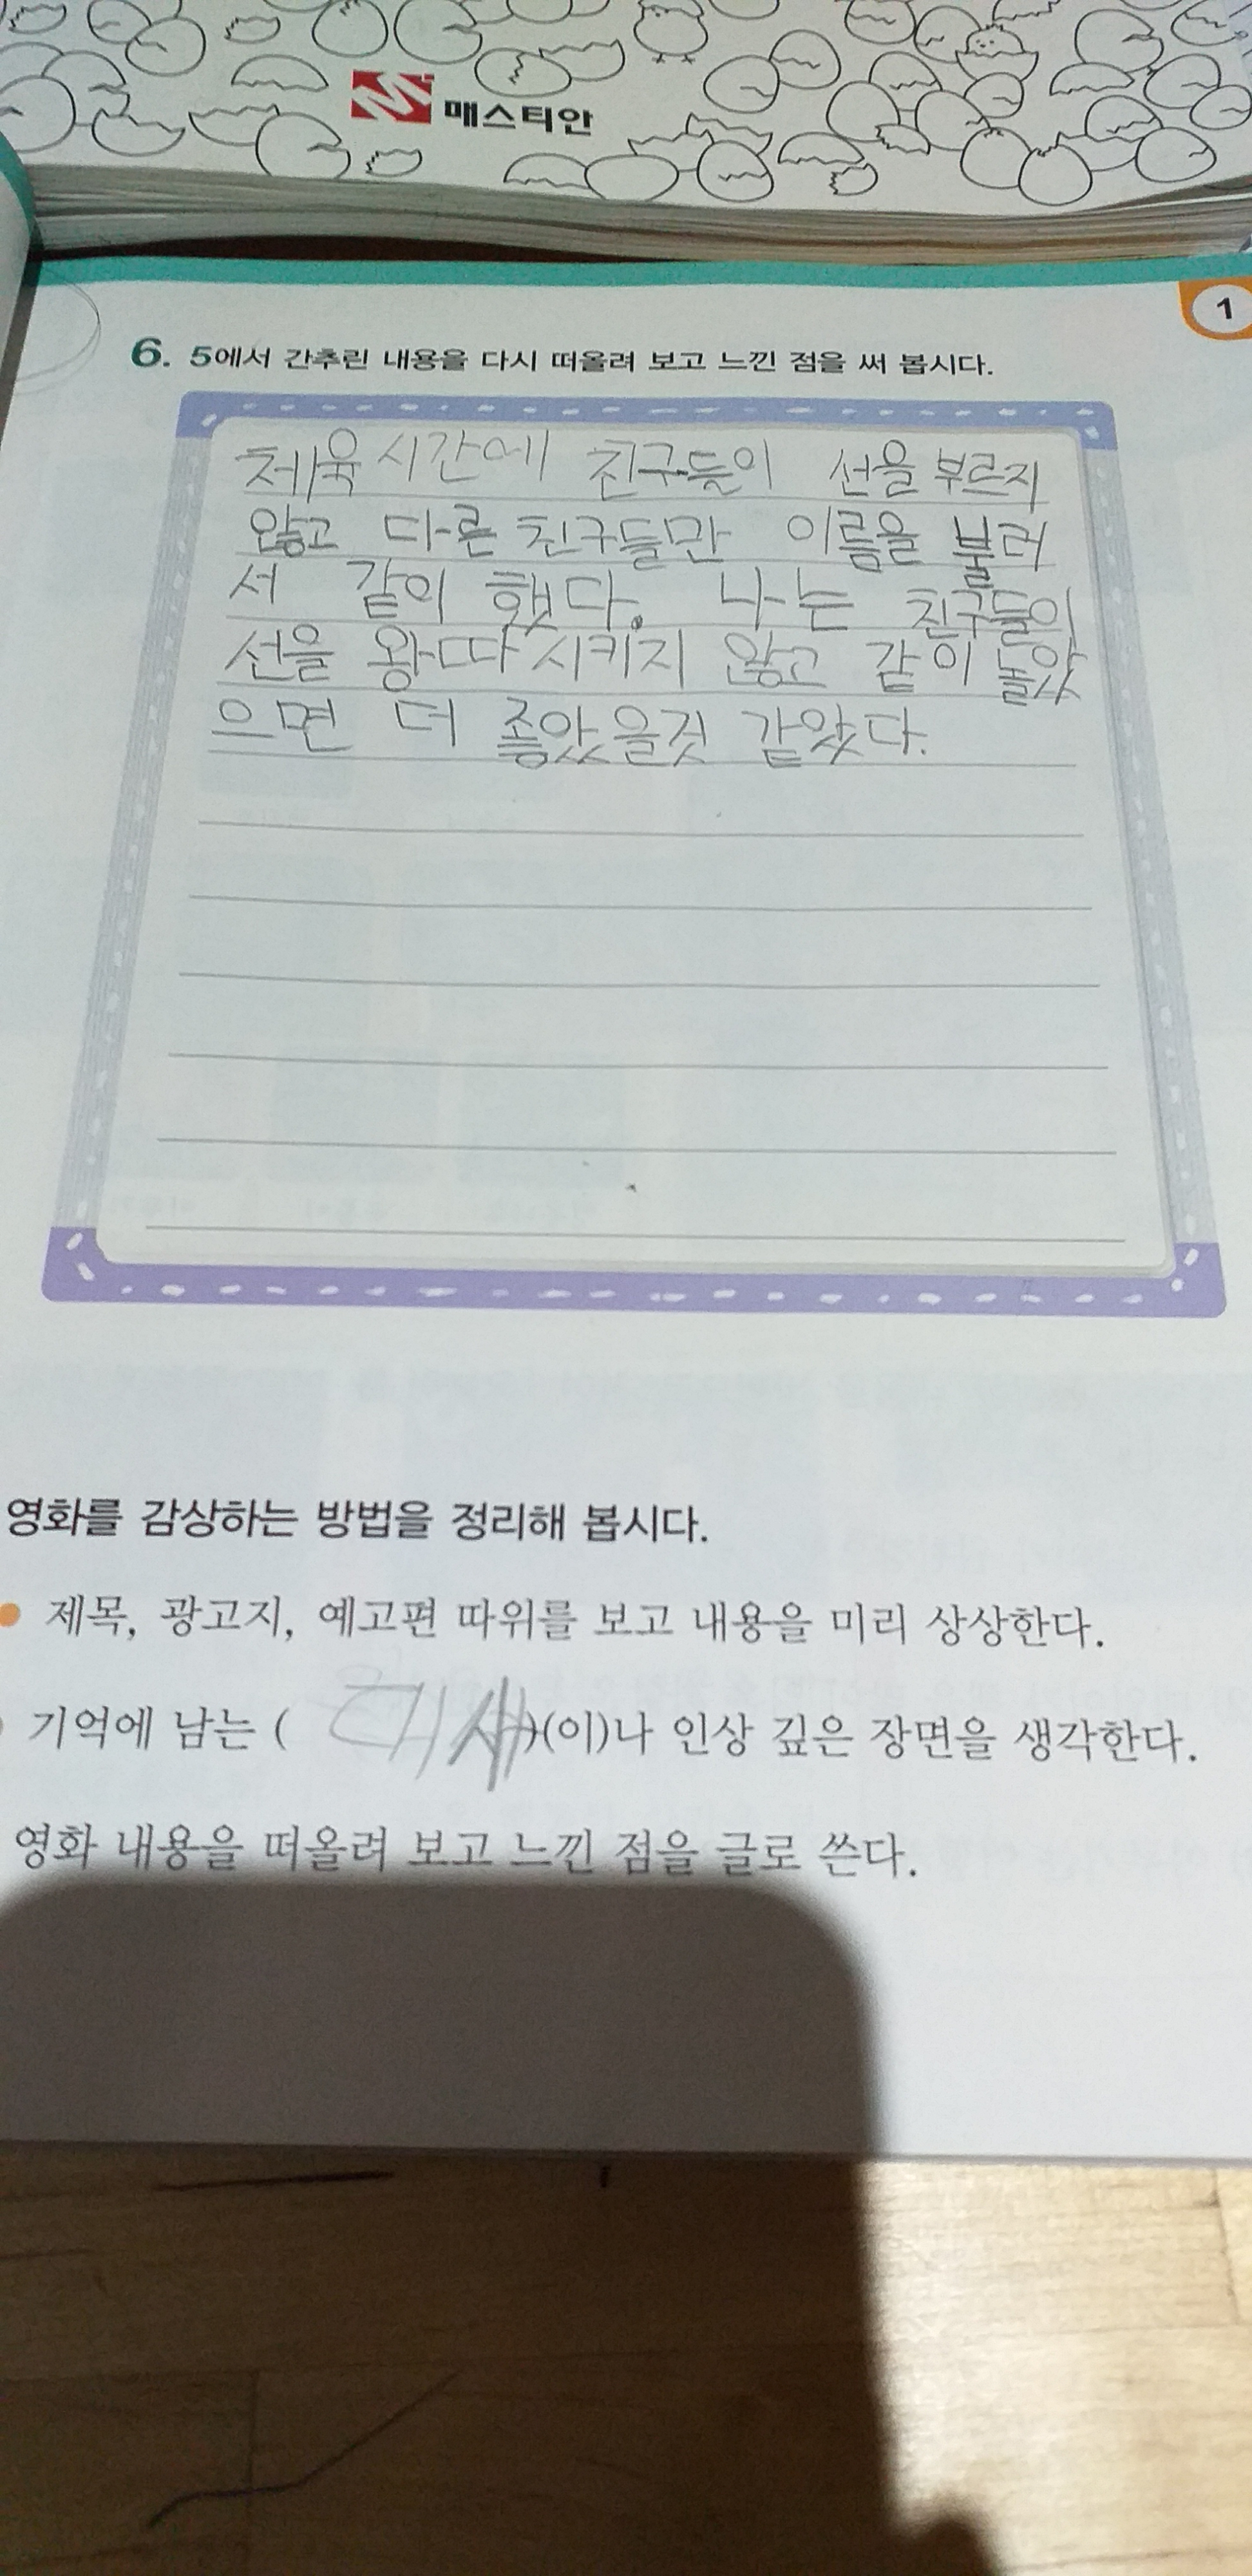 매스티안
1
6. 5에서 간추린 내용을 다시 떠올려 보고 느낀 점을 써 봅시다.
체육 시간에 친구들이 선을 부르지
않고 다른 친구들만 이름을 불러
서 같이 했다. 나는 친구들이
선을 왕따 시키지 않고 같이 놀았
으면 더 좋았을것 같았다.
영화를 감상하는 방법을 정리해 봅시다.
제목, 광고지, 예고편 따위를 보고 내용을 미리 상상한다.
기억에 남는 ( 대사)(이)나 인상 깊은 장면을 생각한다.
영화 내용을 떠올려 보고 느낀 점을 글로 쓴다.